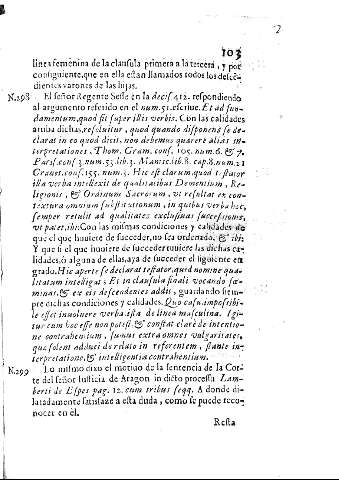 2
103
linea femenina de la clausula primera a la tercera, y por
consiguiente, que en ella estàn llamados todos los descē-
dientes varones de las hijas.
N.298 El señor Regente Sesse en la decis. 412. respondiendo
al argumento referido en el num. 51. escriue. Et ad fun-
damentum, quod sit super illis verbis. Con las calidades
arriba dichas, resoluitur, quod quando disponens se de-
clarat in eo quod dicit, non debemus quærere alias in-
terpretationes, Thom. Gram. conf. 105. num. 6. & 7.
Paris. conf. 3. num. 53. lib. 3. Mantic. lib. 8. cap. 8. num. 21
Grauet. conf. 155. num. 3. Hic est clarum, quod testator
illa verba intellexit de qualitatibus Dementium, Re-
ligionis, & Ordinum Sacrorum, vt resultat ex con-
textura omnium substitutionum, in quibus verba hæc,
semper retulit ad qualitates exclusiuas successionis,
vt patet, ibi: Con las mismas condiciones y calidades de
que el que huuiere de succeder, no sea ordenado. & ibi:
Y que si el que huuiere de succeder tuuiere las dichas ca-
lidades, ò alguna de ellas, aya de succeder el siguiente en
grado. Hic aperte se declarat testator, quid nomine qua-
litatum intelligat; Et in clausula finali vocando fœ-
minas, & ex eis descendentes addit, guardando siem-
pre dichas condiciones y calidades. Quo casu impossibi-
le esset inuoluere verba ista de linea masculina. Igi-
tur cum hoc esse non potest, & constat clarè de intentio-
ne contrahentium, sumus extra omnes vulgaritates,
quæ solent adduci de relato in referentem, stante in-
terpretatione, & intelligentia contrahentium.
N.299 Lo mismo dixo el motiuo de la sentencia de la Cor-
te del señor Iusticia de Aragon in dicto processu Lam-
berti de Espes pag. 12. cum tribus seqq. A donde di-
latadamente satisfaze a esta duda, como se puede reco-
nocer en èl.
Resta